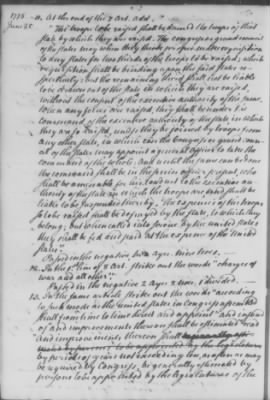 1778
June 25
11. At the end of the 8 Art. add,
"The troops to be raised shall be deemed the troops of that
state by which they are raised. The congress or grand council
of the states may when they think proper make requisition
to any state for two thirds of the troops to be raised; which
requisition shall be binding upon the said states re-
spectively; but the remaining third shall not be liable
to be drawn out of the state in which they are raised,
without the consent of the executive authority of the same.
When any forces are raised, they shall be under the
command of the executive authority of the state in which
they are so raised, unless they be joined by troops from
any other state, in which case the congress or grand coun-
cil of the states may appoint a general officer to take the
command of the whole: And until the same can be done
the command shall be in the senior officer present, who
shall be amenable for his conduct to the executive au-
thority of the state in which the troops are and shall be
liable to be suspended thereby. The expences of the troops
so to be raised shall be defrayed by the state, to which they
belong; but when called into service by the united states
they shall be fed and paid at the expence of the united
states."
Passed in the negative
12. In the 6 line of 8 Art. strike out the words "charges of
war and all other"
Passed in the negative
13. In the same article strike out the words "according
to such mode as the united states in Congress assembled
shall from time to time direct and appoint" and instead
of and improvements thereon shall be estimated read
and improvements thereon shall
by periods of years not exceeding ten, as often as may
be required by Congress, be generally estimated by
persons to be appointed by the legislatures of the